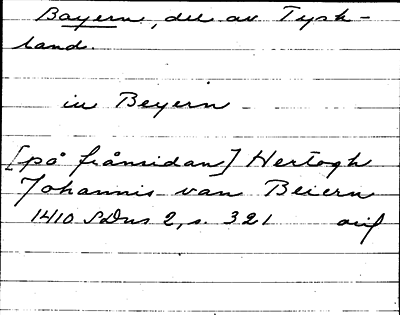 Bayern, del av Tysk-
land.
in Beyern
[på frånsidan] Hertogh
Johannis van Beiern
1410 SDns 2, s. 321